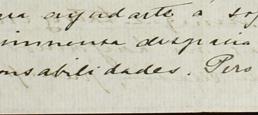 ayudarte á
inmensa desgracia
onsabilidades. Pero